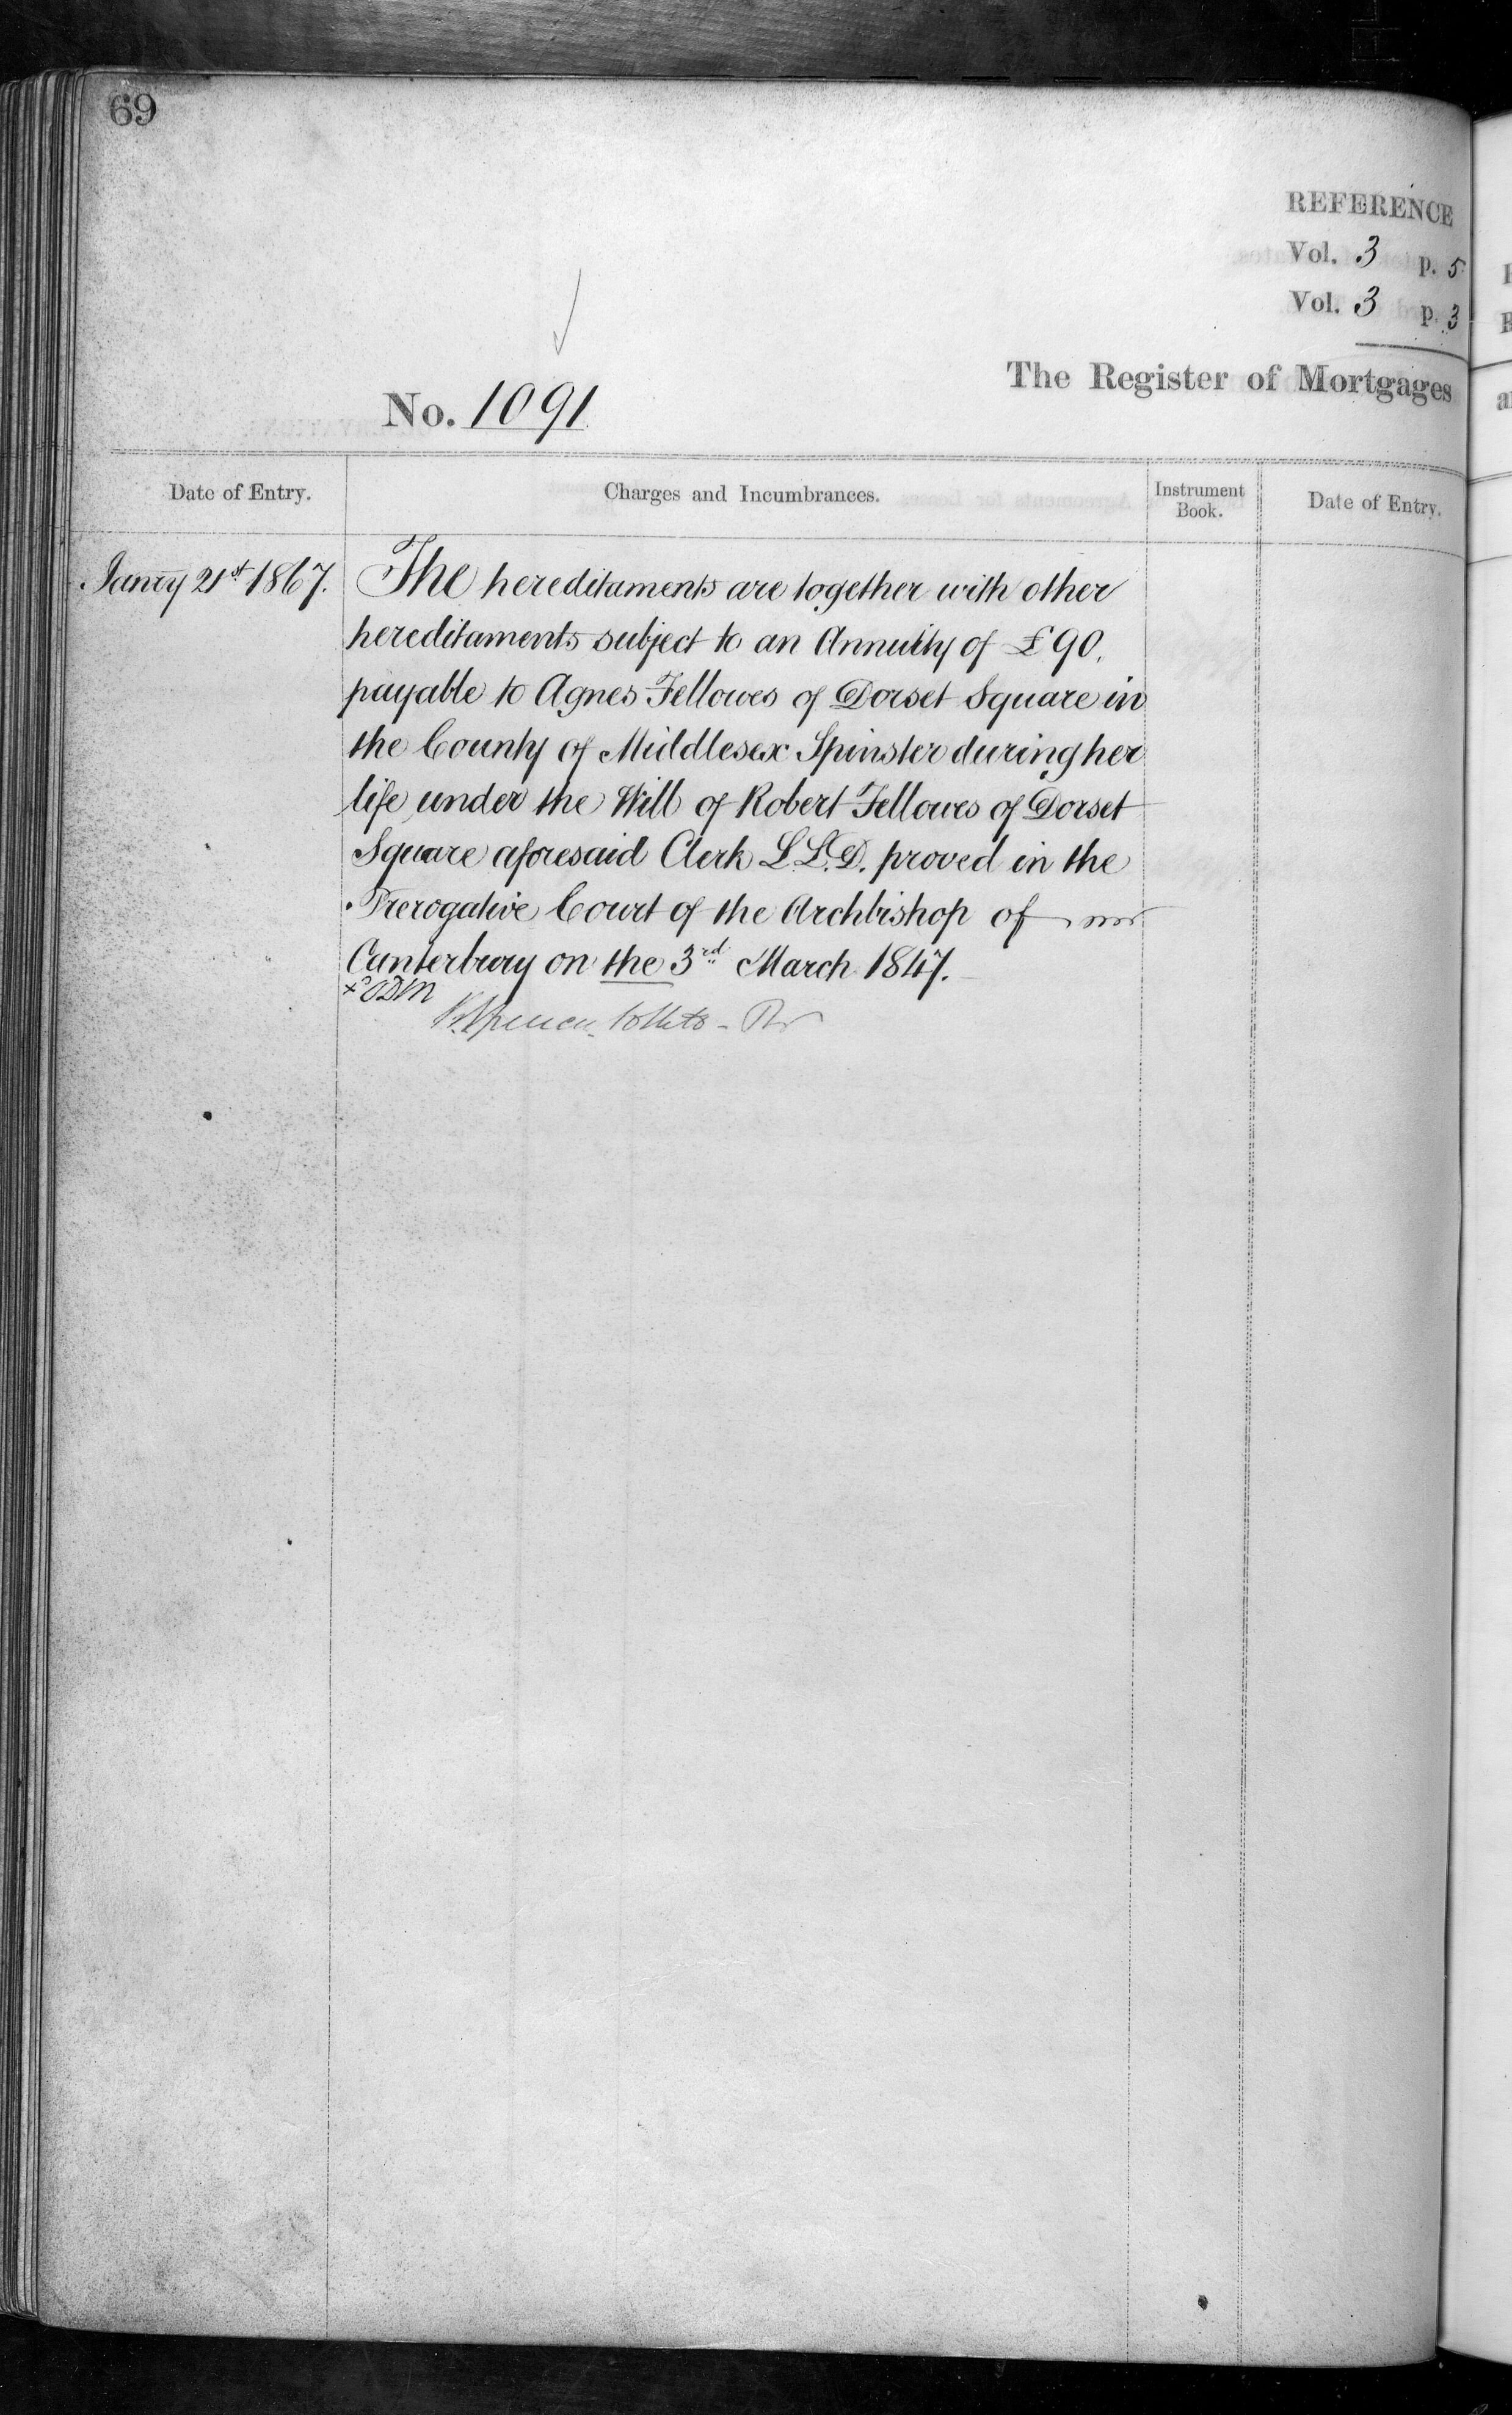 69
REFERENCE
Vol. 3 p. 5
Vol. 3 p. 3
The Register of Mortgages
No. 1091
Date of Entry.
Charges and Incumbrances.
Instrument
Book.
Date of Entry.
Janry 21st 1867.
The hereditaments are together with other
hereditaments subject to an Annuity of £90.
payable to Agnes Fellowes of Dorset Square in
the County of Middlesex Spinster during her
life under the Will of Robert Fellowes of Dorset
Square aforesaid Clerk L.L.D. proved in the
Prerogative Court of the Archbishop of
Canterbury on the 3rd March 1847.